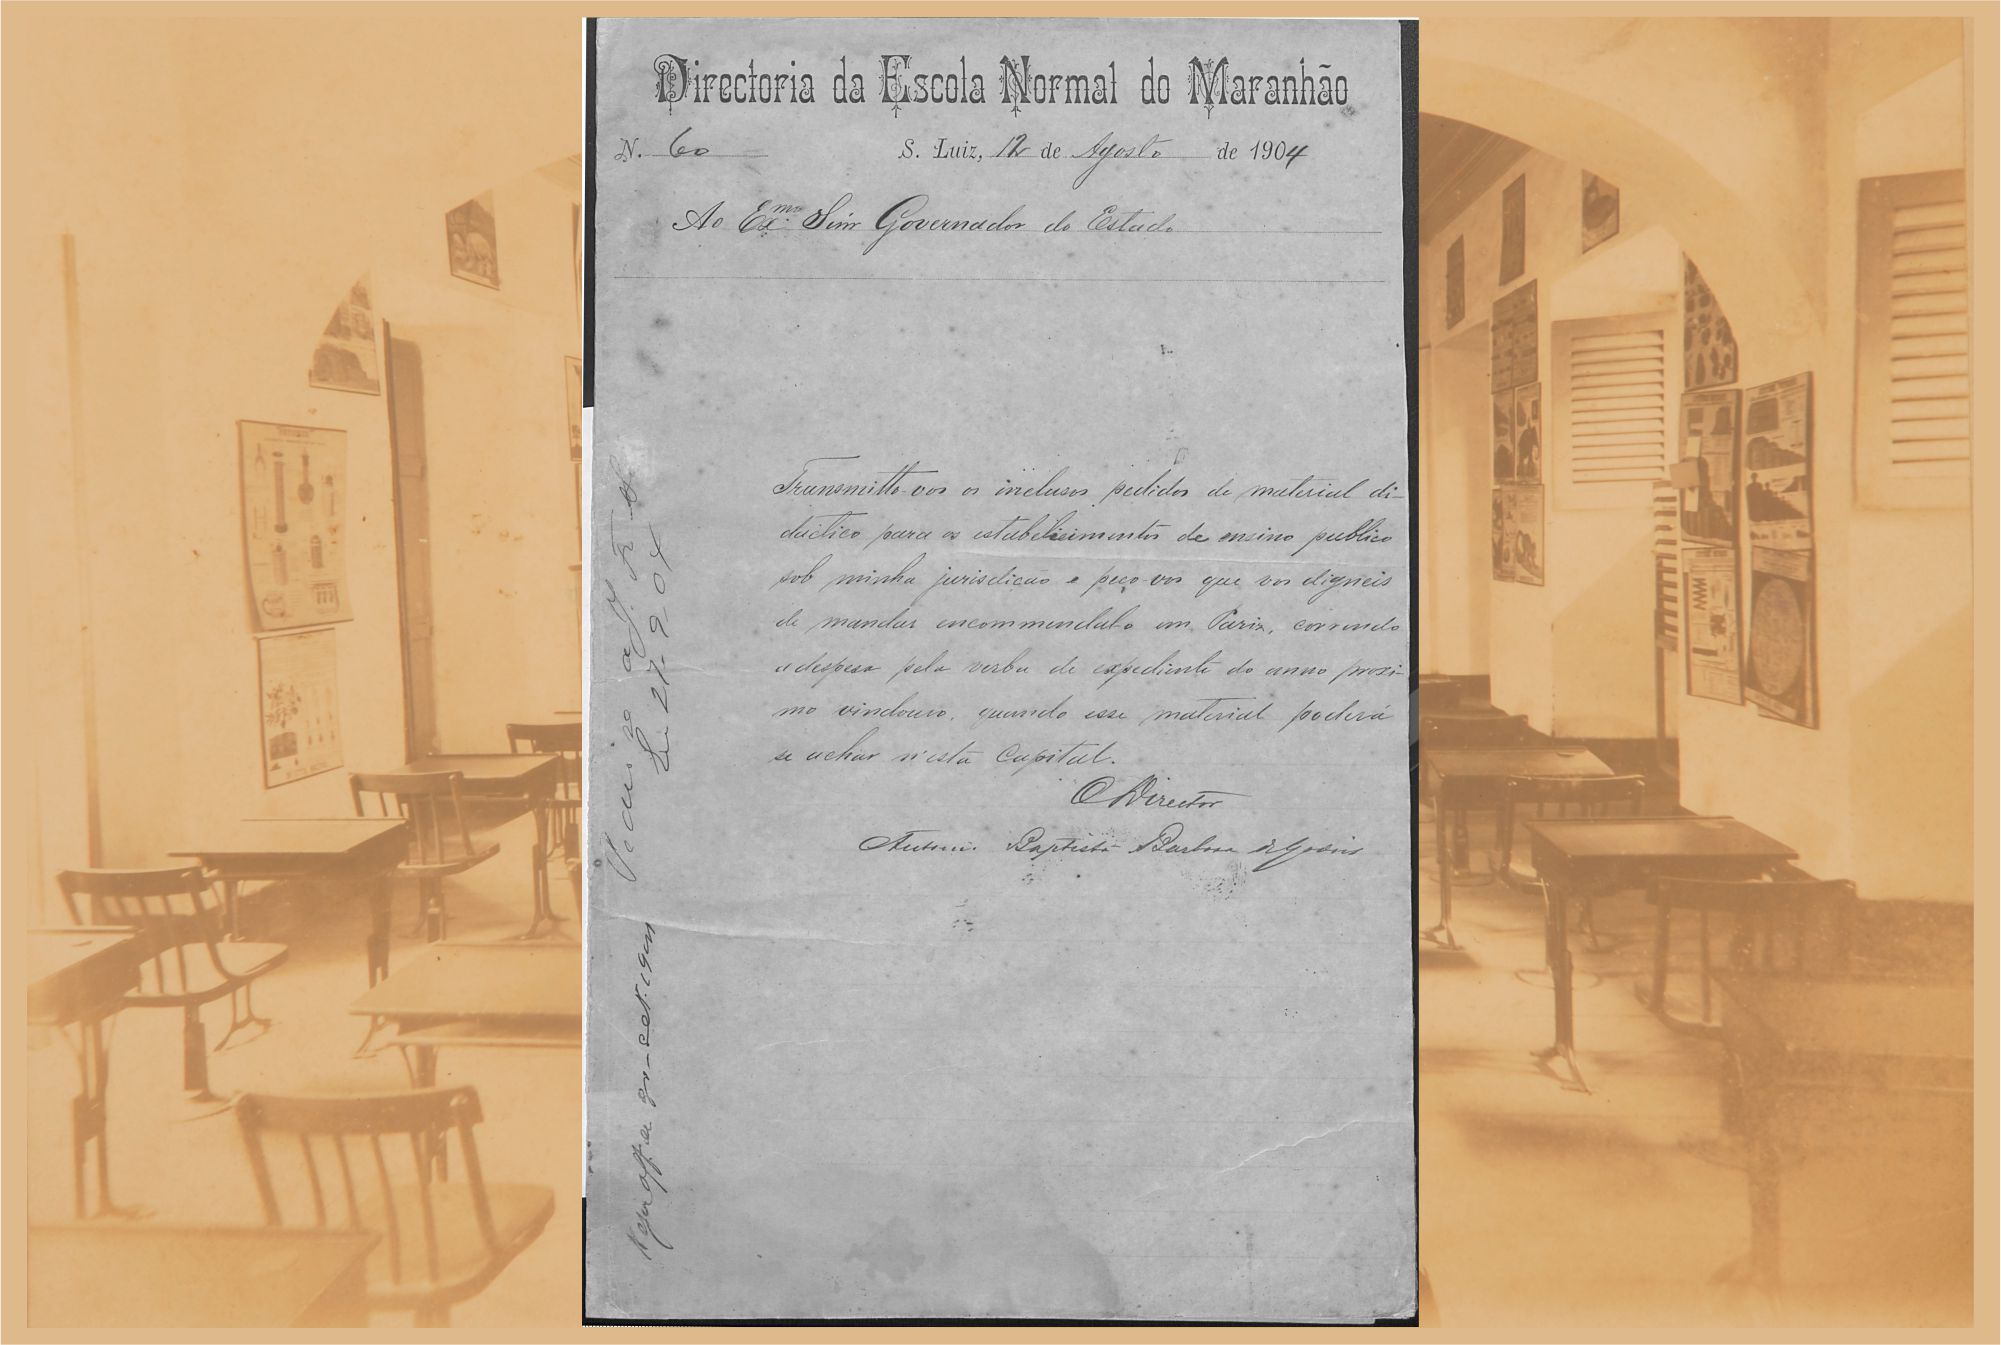 Directoria da Escola Normal do Maranhão
N. 60 S. Luiz, 12 de Agosto de 1904
Ao Exmo Snr Governador do Estado
Transmitto-vos os inclusos pedidos de material di-
dactico para os estabelecimentos de ensino publico
sob minha jurisdicão e peço-vos que vos digneis
de mandar encommendal-o em Pariz, correndo
a despesa pela verba de expediente do anno proxi-
mo vindouro, quando esse material poderá
se achar n'esta Capital.
O Director
Antonio Baptista Barbosa de Godois